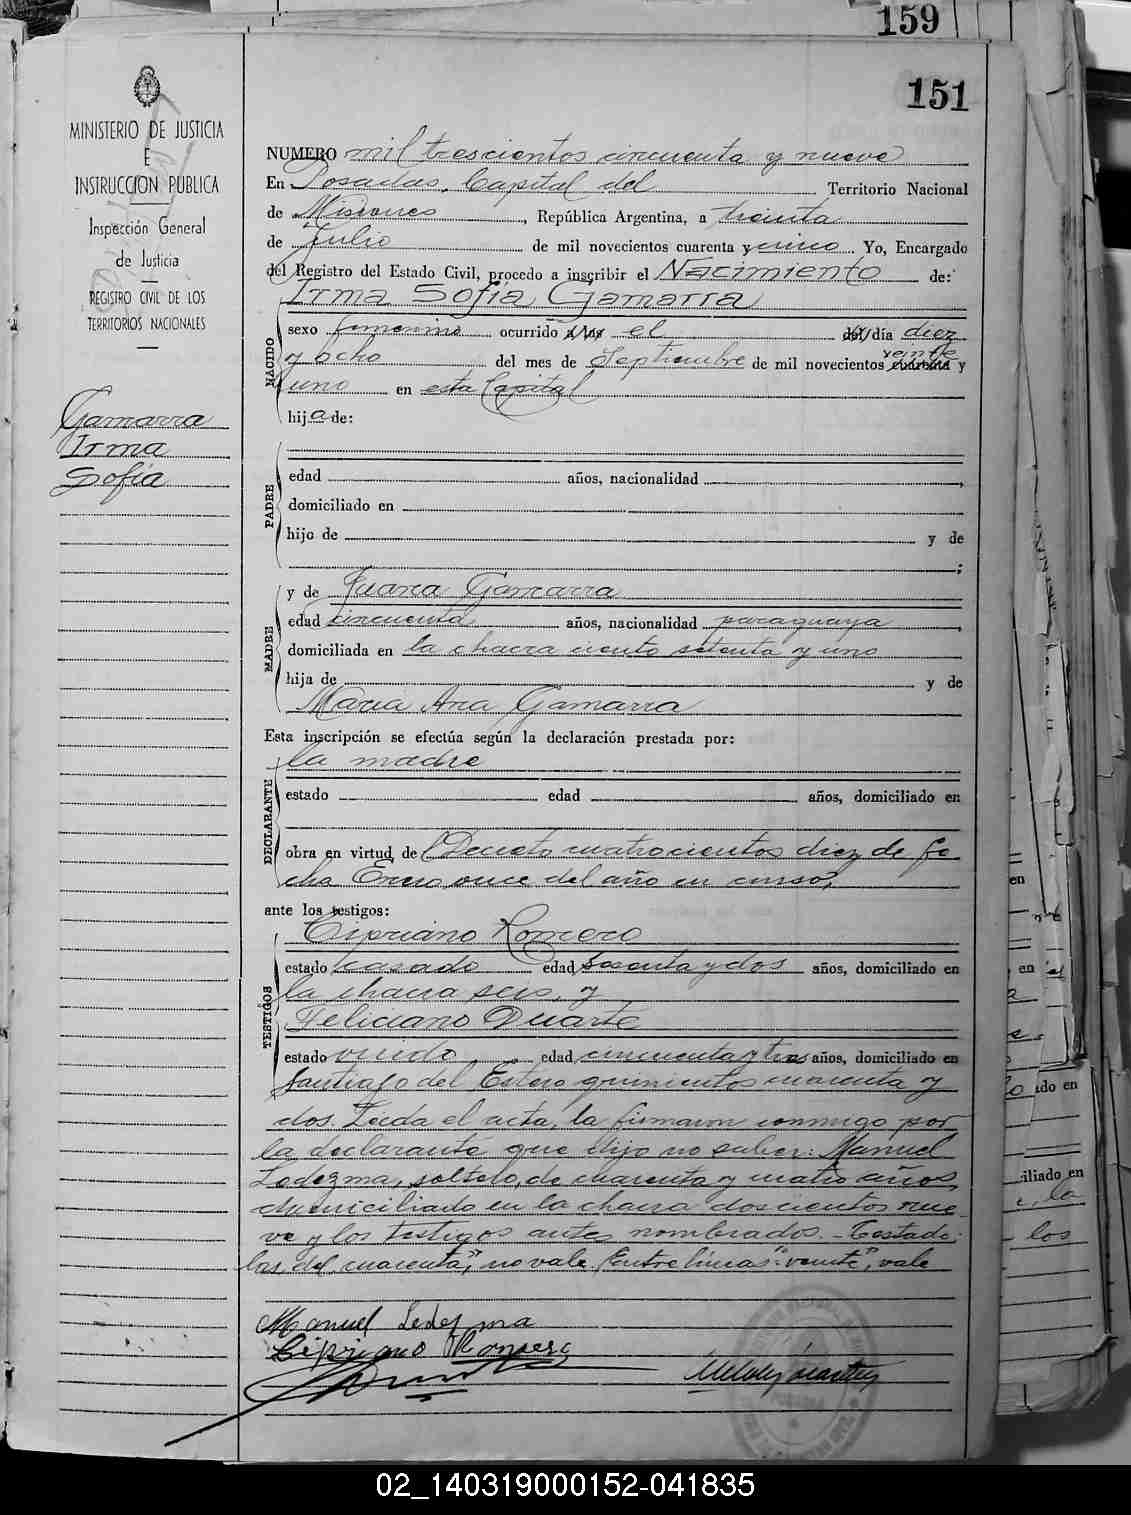 159
151
MINISTERIO DE JUSTICIA
E
INSTRUCCION PUBLICA
Inspección General
de Justicia
REGISTRO CIVIL DE LOS
TERRITORIOS NACIONALES
Gamarra
Irma
Sofía
NUMERO mil trescientos cincuenta y nueve
En Posadas, Capital del Territorio Nacional
de Misiones, República Argentina, a treinta
de Julio de mil novecientos cuarenta y cinco Yo, Encargado
del Registro del Estado Civil, procedo a inscribir el Nacimiento de:
Irma Sofía Gamarra
NACIDO
sexo femenino ocurrido a las el del día diez
veinte
y ocho del mes de Septiembre de mil novecientos cuarenta y
uno en esta Capital
hija de:
PADRE
edad años, nacionalidad
domiciliado en
hijo de y de
;
MADRE
y de Juana Gamarra
edad cincuenta años, nacionalidad paraguaya,
domiciliada en la chacra ciento setenta y uno
hija de y de
María Ana Gamarra
Esta inscripción se efectúa según la declaración prestada por:
la madre
DECLARANTE
estado edad años, domiciliado en
obra en virtud de Decreto cuatrocientos diez de fe-
cha Enero once del año en curso,
ante los testigos:
TESTIGOS
Cipriano Romero
estado casado edad sesenta y dos años, domiciliado en
la chacra seis, y
Feliciano Duarte
estado viudo, edad cincuenta y tres años, domiciliado en
Santiago del Estero quinientos cuarenta y
dos. Leída el acta, la firmaron conmigo por
la declarante que dijo no saber: Manuel
Ledezma, soltero, de cuarenta y cuatro años,
domiciliado en la chacra doscientos nue-
ve y los testigos antes nombrados.- Testado:
las, del cuarenta", no vale. Entre líneas: "veinte", vale
Manuel Ledezma
Cipriano Romero
en
en
ado en
iliado en
la
los
02_140319000152-041835